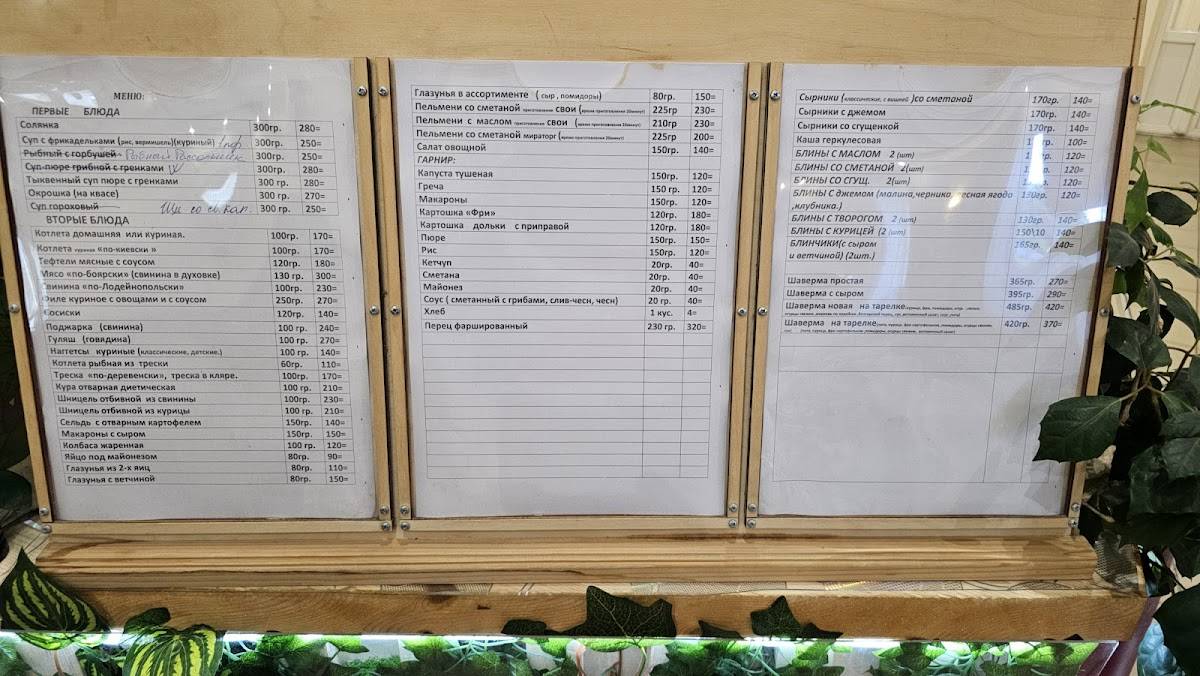 МЕНЮ:
ПЕРВЫЕ БЛЮДА
Солянка 300гр. 280=
Суп с фрикадельками (рис, вермишель)(куриный) 300гр. 250=
Рыбный с горбушей Рыбный Рассольник 300гр. 250=
Суп-пюре грибной с гренками 300гр. 280=
Тыквенный суп пюре с гренками 300 гр. 280=
Окрошка (на квасе) 300 гр. 270=
Суп гороховый Щи со св. кап. 300 гр. 250=
ВТОРЫЕ БЛЮДА
Котлета домашняя или куриная. 100гр. 170=
Котлета куриная «по-киевски » 100гр. 170=
Тефтели мясные с соусом 120гр. 180=
Мясо «по-боярски» (свинина в духовке) 130 гр. 300=
Свинина «по-Лодейнопольски» 100гр. 230=
Филе куриное с овощами и с соусом 250гр. 270=
Сосиски 120гр. 140=
Поджарка (свинина) 100 гр. 240=
Гуляш (говядина) 100 гр. 270=
Наггетсы куриные (классические, детские.) 100 гр. 140=
Котлета рыбная из трески 60гр. 110=
Треска «по-деревенски», треска в кляре. 100гр. 170=
Кура отварная диетическая 100 гр. 210=
Шницель отбивной из свинины 100гр. 230=
Шницель отбивной из курицы 100 гр. 210=
Сельдь с отварным картофелем 150гр. 140=
Макароны с сыром 150гр. 150=
Колбаса жаренная 100 гр. 120=
Яйцо под майонезом 80гр. 90=
Глазунья из 2-х яиц 80гр. 110=
Глазунья с ветчиной 80гр. 150=
Глазунья в ассортименте ( сыр , помидоры) 80гр. 150=
Пельмени со сметаной приготовления СВОИ (время приготовления 20минут) 225гр 230=
Пельмени с маслом приготовления СВОИ (время приготовления 20минут) 210гр 230=
Пельмени со сметаной мираторг (время приготовления 20минут) 225гр 200=
Салат овощной 150гр. 140=
ГАРНИР:
Капуста тушеная 150гр. 120=
Греча 150 гр. 120=
Макароны 150гр. 120=
Картошка «Фри» 120гр. 180=
Картошка дольки с приправой 120гр. 180=
Пюре 150гр. 150=
Рис 150гр. 120=
Кетчуп 20гр. 40=
Сметана 20гр. 40=
Майонез 20гр. 40=
Соус ( сметанный с грибами, слив-чесн, чесн) 20 гр. 40=
Хлеб 1 кус. 4=
Перец фаршированный 230 гр. 320=
Сырники (классические, с вишней )со сметаной 170гр. 140=
Сырники с джемом 170гр. 140=
Сырники со сгущенкой 170гр. 140=
Каша геркулесовая 100=
БЛИНЫ С МАСЛОМ 2 (шт) 120=
БЛИНЫ СО СМЕТАНОЙ 2(шт) 120=
БЛИНЫ СО СГУЩ. 2(шт) 120=
БЛИНЫ С джемом (малина,черника,лесная ягода 130гр. 120=
,клубника.)
БЛИНЫ С ТВОРОГОМ 2 (шт) 130гр. 140=
БЛИНЫ С КУРИЦЕЙ (2 (шт) 150\10 140=
БЛИНЧИКИ(с сыром 165гр. 140=
и ветчиной) (2шт.)
Шаверма простая 365гр. 270=
Шаверма с сыром 395гр. 290=
Шаверма новая на тарелке 485гр. 420=
Шаверма на тарелке 420гр. 370=